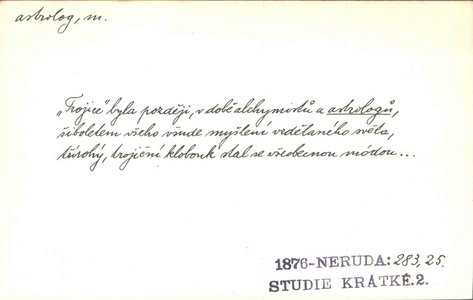 astrolog, m.
„Trojice" byla později, v době alchymistů a astrologů,
šiboletem všeho všude myšlení vedělaného světa,
tűrohý, trojiční klobouk stal se všeobecnou módou...
1876-NERUDA: 283, 25.
STUDIE KRÁTKÉ.2.